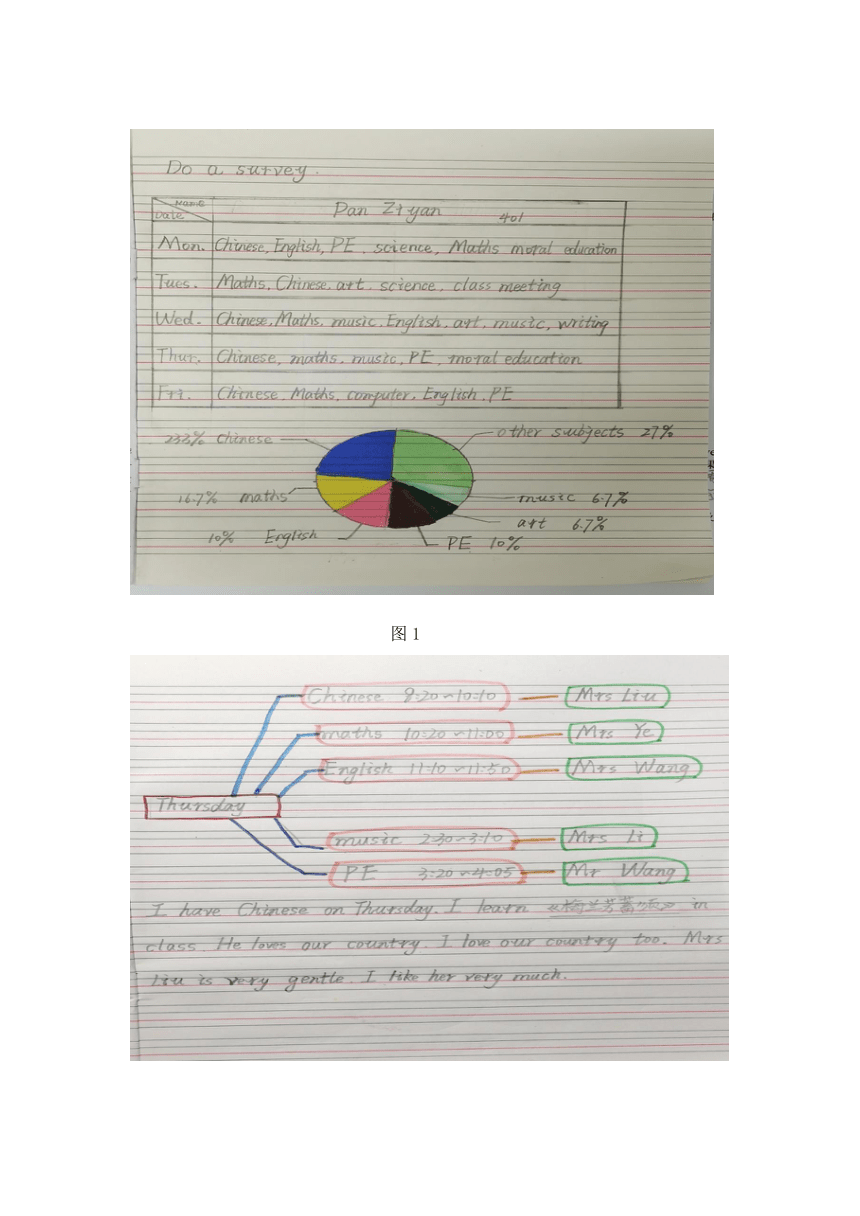 Do a survey.
Name
Date
Pan Ziyan 401
Mon. Chinese, English, PE, science, Maths moral education
Tues. Maths, Chinese, art, science, class meeting
Wed. Chinese, Maths, music, English, art, music, writing
Thur. Chinese, maths, music, PE, moral education
Fri. Chinese, Maths, computer, English, PE
23.3% Chinese
other subjects 27%
16.7% maths
music 6.7%
art 6.7%
10% English
PE 10%
图 1
Chinese 9:20~10:10 Mrs Liu
maths 10:20~11:00 Mrs Ye
English 11:10~11:50 Mrs Wang
Thursday
music 2:30~3:10 Mrs Li
PE 3:20~4:05 Mr Wang
I have Chinese on Thursday. I learn 《梅兰芳蓄须》 in
class. He loves our country. I love our country too. Mrs
Liu is very gentle. I like her very much.